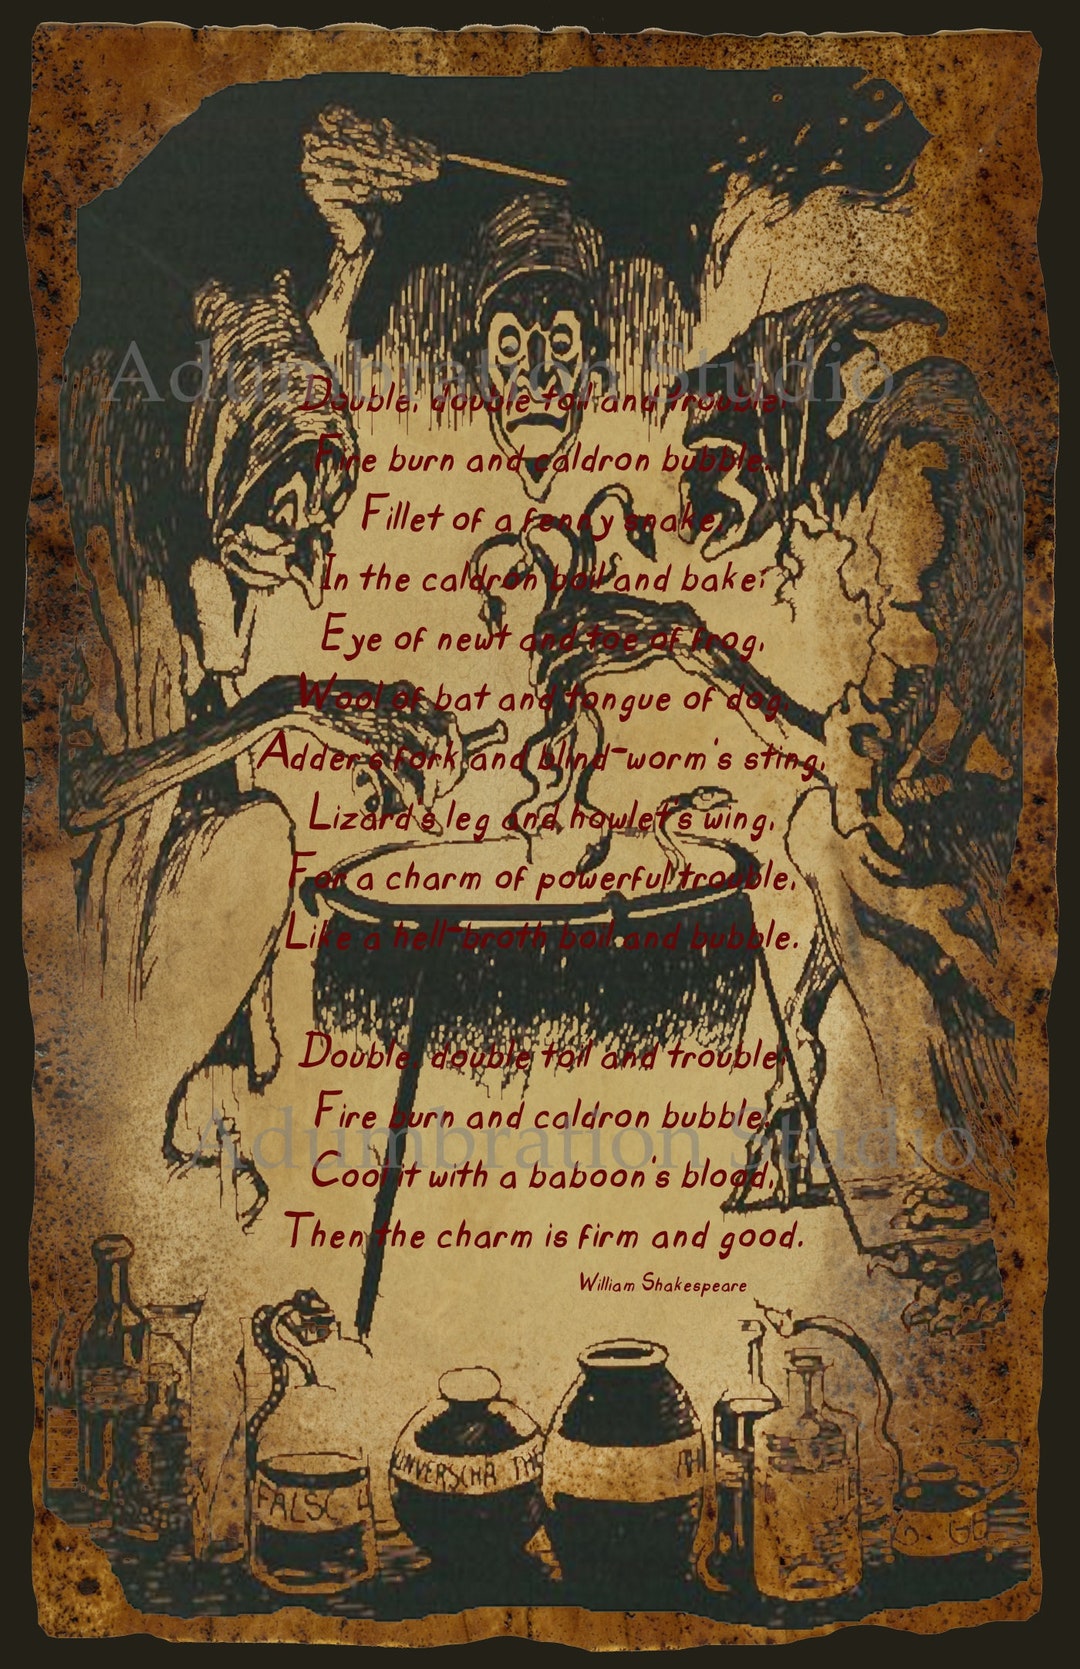 Adumbration Studio
Double, double toil and trouble;
Fire burn and caldron bubble.
Fillet of a fenny snake,
In the caldron boil and bake;
Eye of newt and toe of frog,
Wool of bat and tongue of dog,
Adder's fork and blind-worm's sting,
Lizard's leg and howlet's wing,
For a charm of powerful trouble,
Like a hell-broth boil and bubble.
Double, double toil and trouble;
Fire burn and caldron bubble.
Adumbration Studio
Cool it with a baboon's blood,
Then the charm is firm and good.
William Shakespeare
FALSC